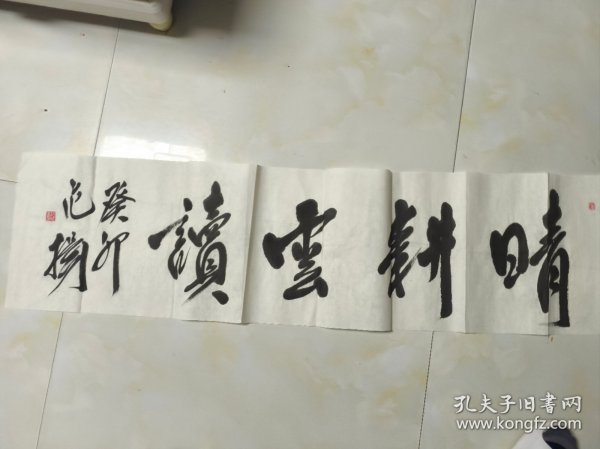 晴耕雲讀
癸卯
孔夫子旧书网
www.kongfz.com